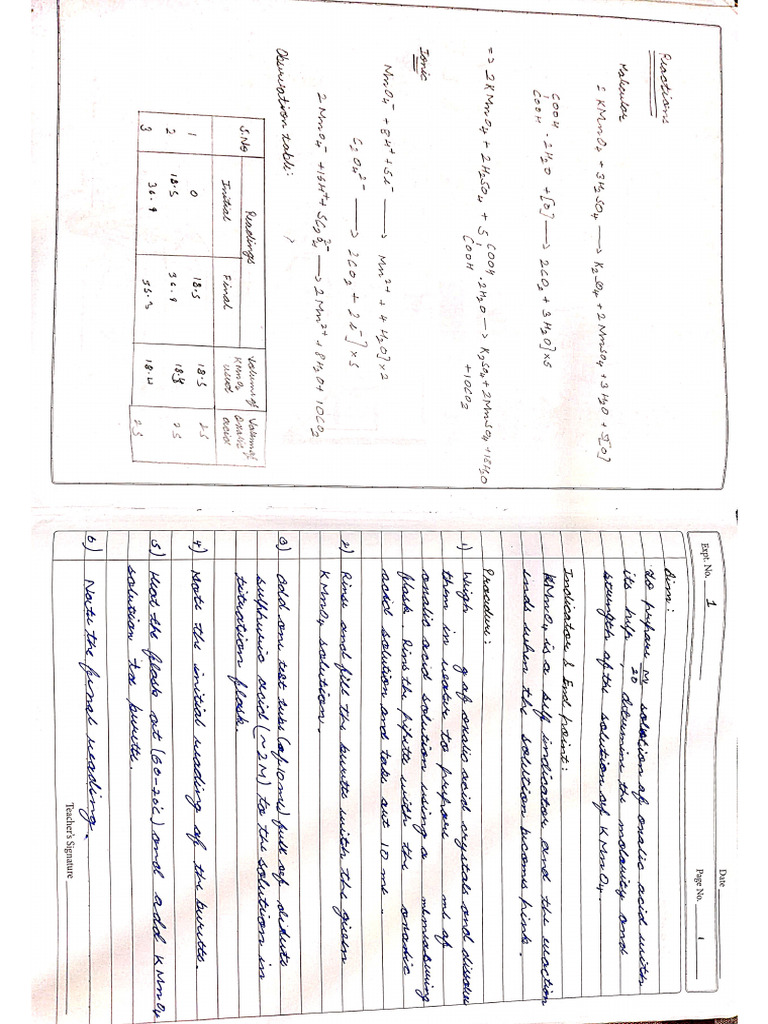 Reactions
Molecular
2 KMnO4 + 3H2SO4 ⟶ K2SO4 + 2 MnSO4 + 3 H2O + 5[O]
COOH
COOH · 2H2O + [O] ⟶ 2CO2 + 3 H2O] x 5
=> 2 KMnO4 + 2H2SO4 + 5 COOH
COOH · 2H2O ⟶ K2SO4 + 2MnSO4 + 18H2O
+ 10CO2
Ionic
MnO4⁻ + 8H⁺ + 5e⁻ ⟶ Mn²⁺ + 4 H2O] x 2
C2O4²⁻ ⟶ 2CO2 + 2e⁻] x 5
2 MnO4⁻ + 16H⁺ + 5C2O4²⁻ ⟶ 2 Mn²⁺ + 8H2O + 10CO2
Observation table:
S.No Readings Volume of KMnO4 used Volume of oxalic acid
Initial Final
1 0 18.5 18.5 25
2 18.5 36.9 18.4 25
3 36.9 55.3 18.4 25
Date
Expt. No. 1 Page No. 1
Aim:
To prepare M/20 solution of oxalic acid with
its help, determine the molarity and
strength of the solution of KMnO4.
Indicator & End point:
KMnO4 is a self indicator and the reaction
ends when the solution becomes pink.
Procedure:
1) Weigh g of oxalic acid crystals and dissolve
them in water to prepare ml of
oxalic acid solution using a measuring
flask. Rinse the pipette with the oxalic
acid solution and take out 10 ml.
2) Rinse and fill the burette with the given
KMnO4 solution.
3) Add one test tube (of 10 ml) full of dilute
sulphuric acid (~2M) to the solution in
titration flask.
4) Note the initial reading of the burette.
5) Heat the flask at (60-70°c) and add KMnO4
solution to burette.
6) Note the final reading.
Teacher's Signature